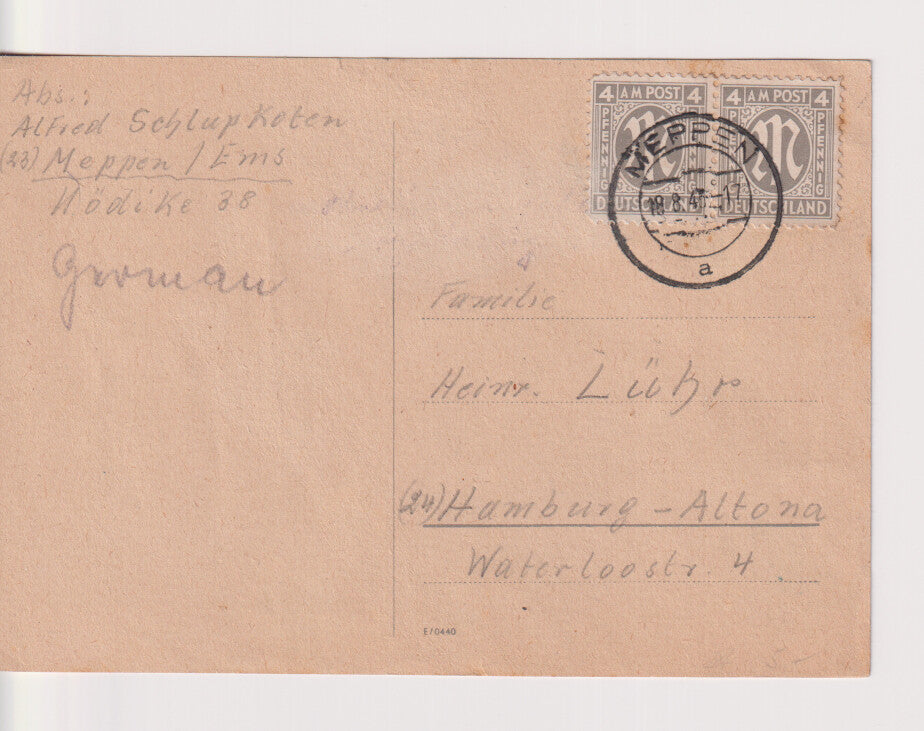 Abs.:
Alfred Schlupkoten
(23) Meppen / Ems
Nödike 38
German
4 AM POST 4
PFENNIG
DEUTSCHLAND
4 AM POST 4
PFENNIG
DEUTSCHLAND
MEPPEN
a
Familie
Heinr. Lühr
(24) Hamburg - Altona
Waterloostr. 4
E/0440